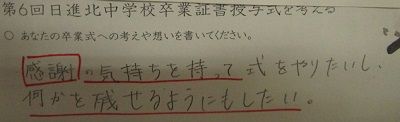 第6回日進北中学校卒業証書授与式を考える
○ あなたの卒業式への考えや想いを書いてください。
感謝の気持ちを持って式をやりたいし、
何かを残せるようにもしたい。